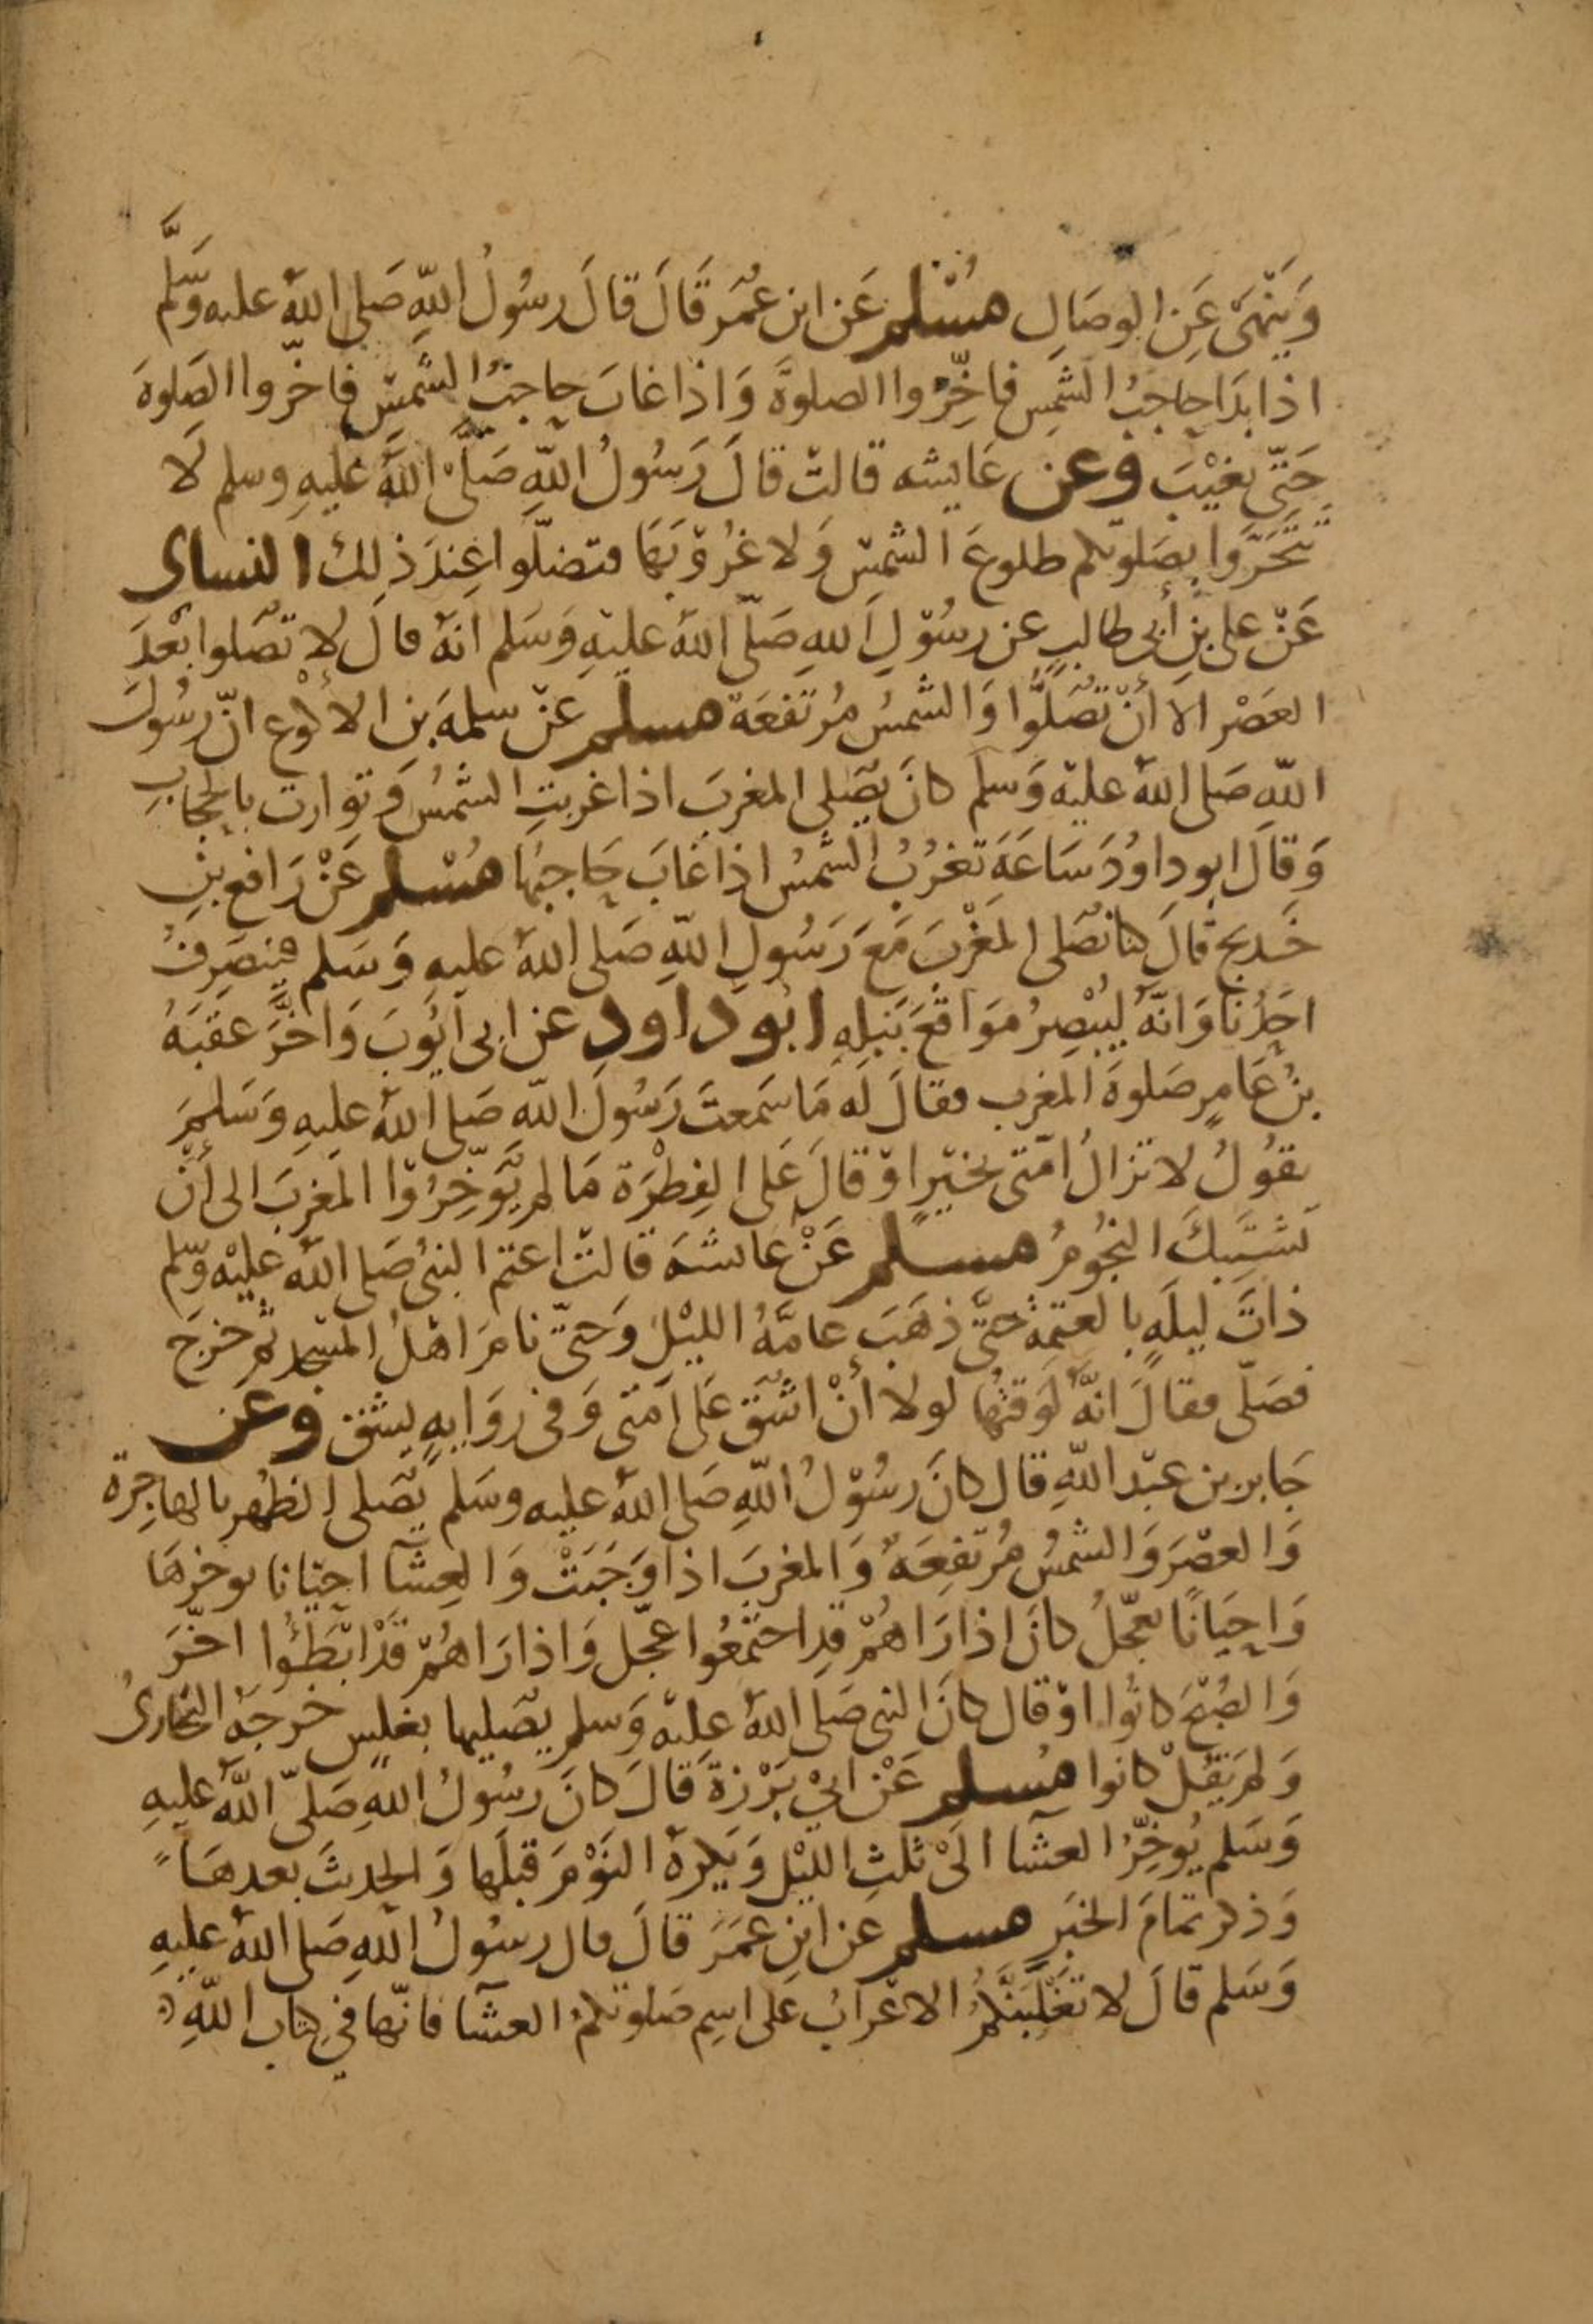 وَيَنْهَى عَنِ الوِصَالِ مُسْلم عَن ابن عُمَرَ قَالَ قَالَ رسُولُ اللهِ صَلى اللهُ عليه وَسَّلم
اذا بَدَا حَاجبُ الشمِس فاخِّرُوا الصلوةَ وَاذا غابَ حاجبُ الشمسِ فاخّروا الصَلوةَ
حَتّى تغيْبَ وعن عَايشه قالتْ قالَ رَسُولُ اللهِ صَلَّى اللهُ عَليهِ وسلم لَا
تَتَحَرَّوا بصَلوتكم طلوعَ الشمسِ وَلا غُرُوْبَهَا فتصَلّوا عِندَ ذلِك النساى
عَنْ على بنِ أبى طالبٍ عن رسُوْلِ اللهِ صَلّى اللهُ عليْهِ وَسَلم انهُ قالَ لا تصَلوا بَعْدَ
العَصْر الا أنْ تُصَلُّوا وَالشمسُ مُرتفعَة مسلم عَنْ سلمهَ بن الأكْوَع انّ رسُولَ
اللهِ صَلى اللهُ عليْه وَسلم كانَ يصَلى المغربَ اذا غربتِ الشمْسُ وَتوارت بالحجَابِ
وَقالَ ابو داوُدَ سَاعَةَ تغرُبُ الشمسُ اذا غابَ حَاجبُها مُسْلم عَنْ رَافع بْنِ
خَديج قالَ كنا نصَلى المَغْربَ مَعَ رَسُولِ اللهِ صَلى اللهُ عليهِ وَسَلم فينصَرِفُ
احَدُنَا وَانّهُ لَيُبْصِرُ مَوَاقعَ نَبْلِهِ ابُو داود عن ابى ايُوبَ وَاخَّرَ عقبَةُ
بنُ عَامرٍ صَلوةَ المغرب فقالَ لَه مَا سَمعتَ رَسُولَ اللهِ صَلى اللهُ عليهِ وَسَلمَ
يقُولُ لا تزالُ امّتى بخيْرٍ اوْ قالَ عَلى الفِطْرَة مَا لم يُؤَخِّرُوْا المَغربَ الى أنْ
تَشتَبِكَ النجُومُ مسلم عَنْ عائشهَ قالتْ اعتم النبىُ صَلى اللهُ عليْه وسّلم
ذاتَ ليلَةٍ بالعتمةِ حَتَّى ذهَبَ عامَّهُ الليْلِ وَحَتىّ نامَ اهْلُ المسْجد ثم خرَجَ
فصَلّى فقالَ انَّهُ لَوقتهُا لولا أنْ اشُقَّ عَلى امَتى وَفى رِوَايهٍ يشقَّ وعن
جَابر بن عبْد اللهِ قال كانَ رسُوْلُ اللهِ صَلى اللهُ عليه وسَلم يُصَلى الظهُر بالهاجِرة
وَالعصْرَ وَالشمسُ مُرتفِعَةٌ وَالمغربَ اذا وَجَبَتْ وَالعِشَآ احيْانا يوخرهَا
وَاحيَانًا يعجّلُ كانَ اذا رَاهُمْ قدِ اجتمعُوا عجّل وَاذا رَاهُمْ قدْ ابْطَئُوا اخّرَ
وَالصُبْحَ كانُوا اوْ قال كانَ النبى صَلى اللهُ عليْه وَسلم يصَليها بغلسٍ خرجَهُ البخارىُ
وَلم يَقُلْ كانوا مُسلم عَنْ ابيْ بَرْزةَ قالَ كانَ رسُولُ اللهِ صَلىّ اللهُ عليهِ
وَسَلم يُوخِّرُ العشَآ الَىْ ثلثِ الليْل وَيَكرهُ النَوْمَ قبْلَها وَالحديثَ بعدهَا
وَذكر تمَامَ الخبَر مسلم عن ابنِ عمَرَ قالَ قال رسُولُ اللهِ صَلى اللهُ عليهِ
وَسَلم قالَ لا تغلبَنَّكمُ الاعْرابُ عَلى اسِم صَلوتكمُ العشآ فانّها فى كتاب اللهِ